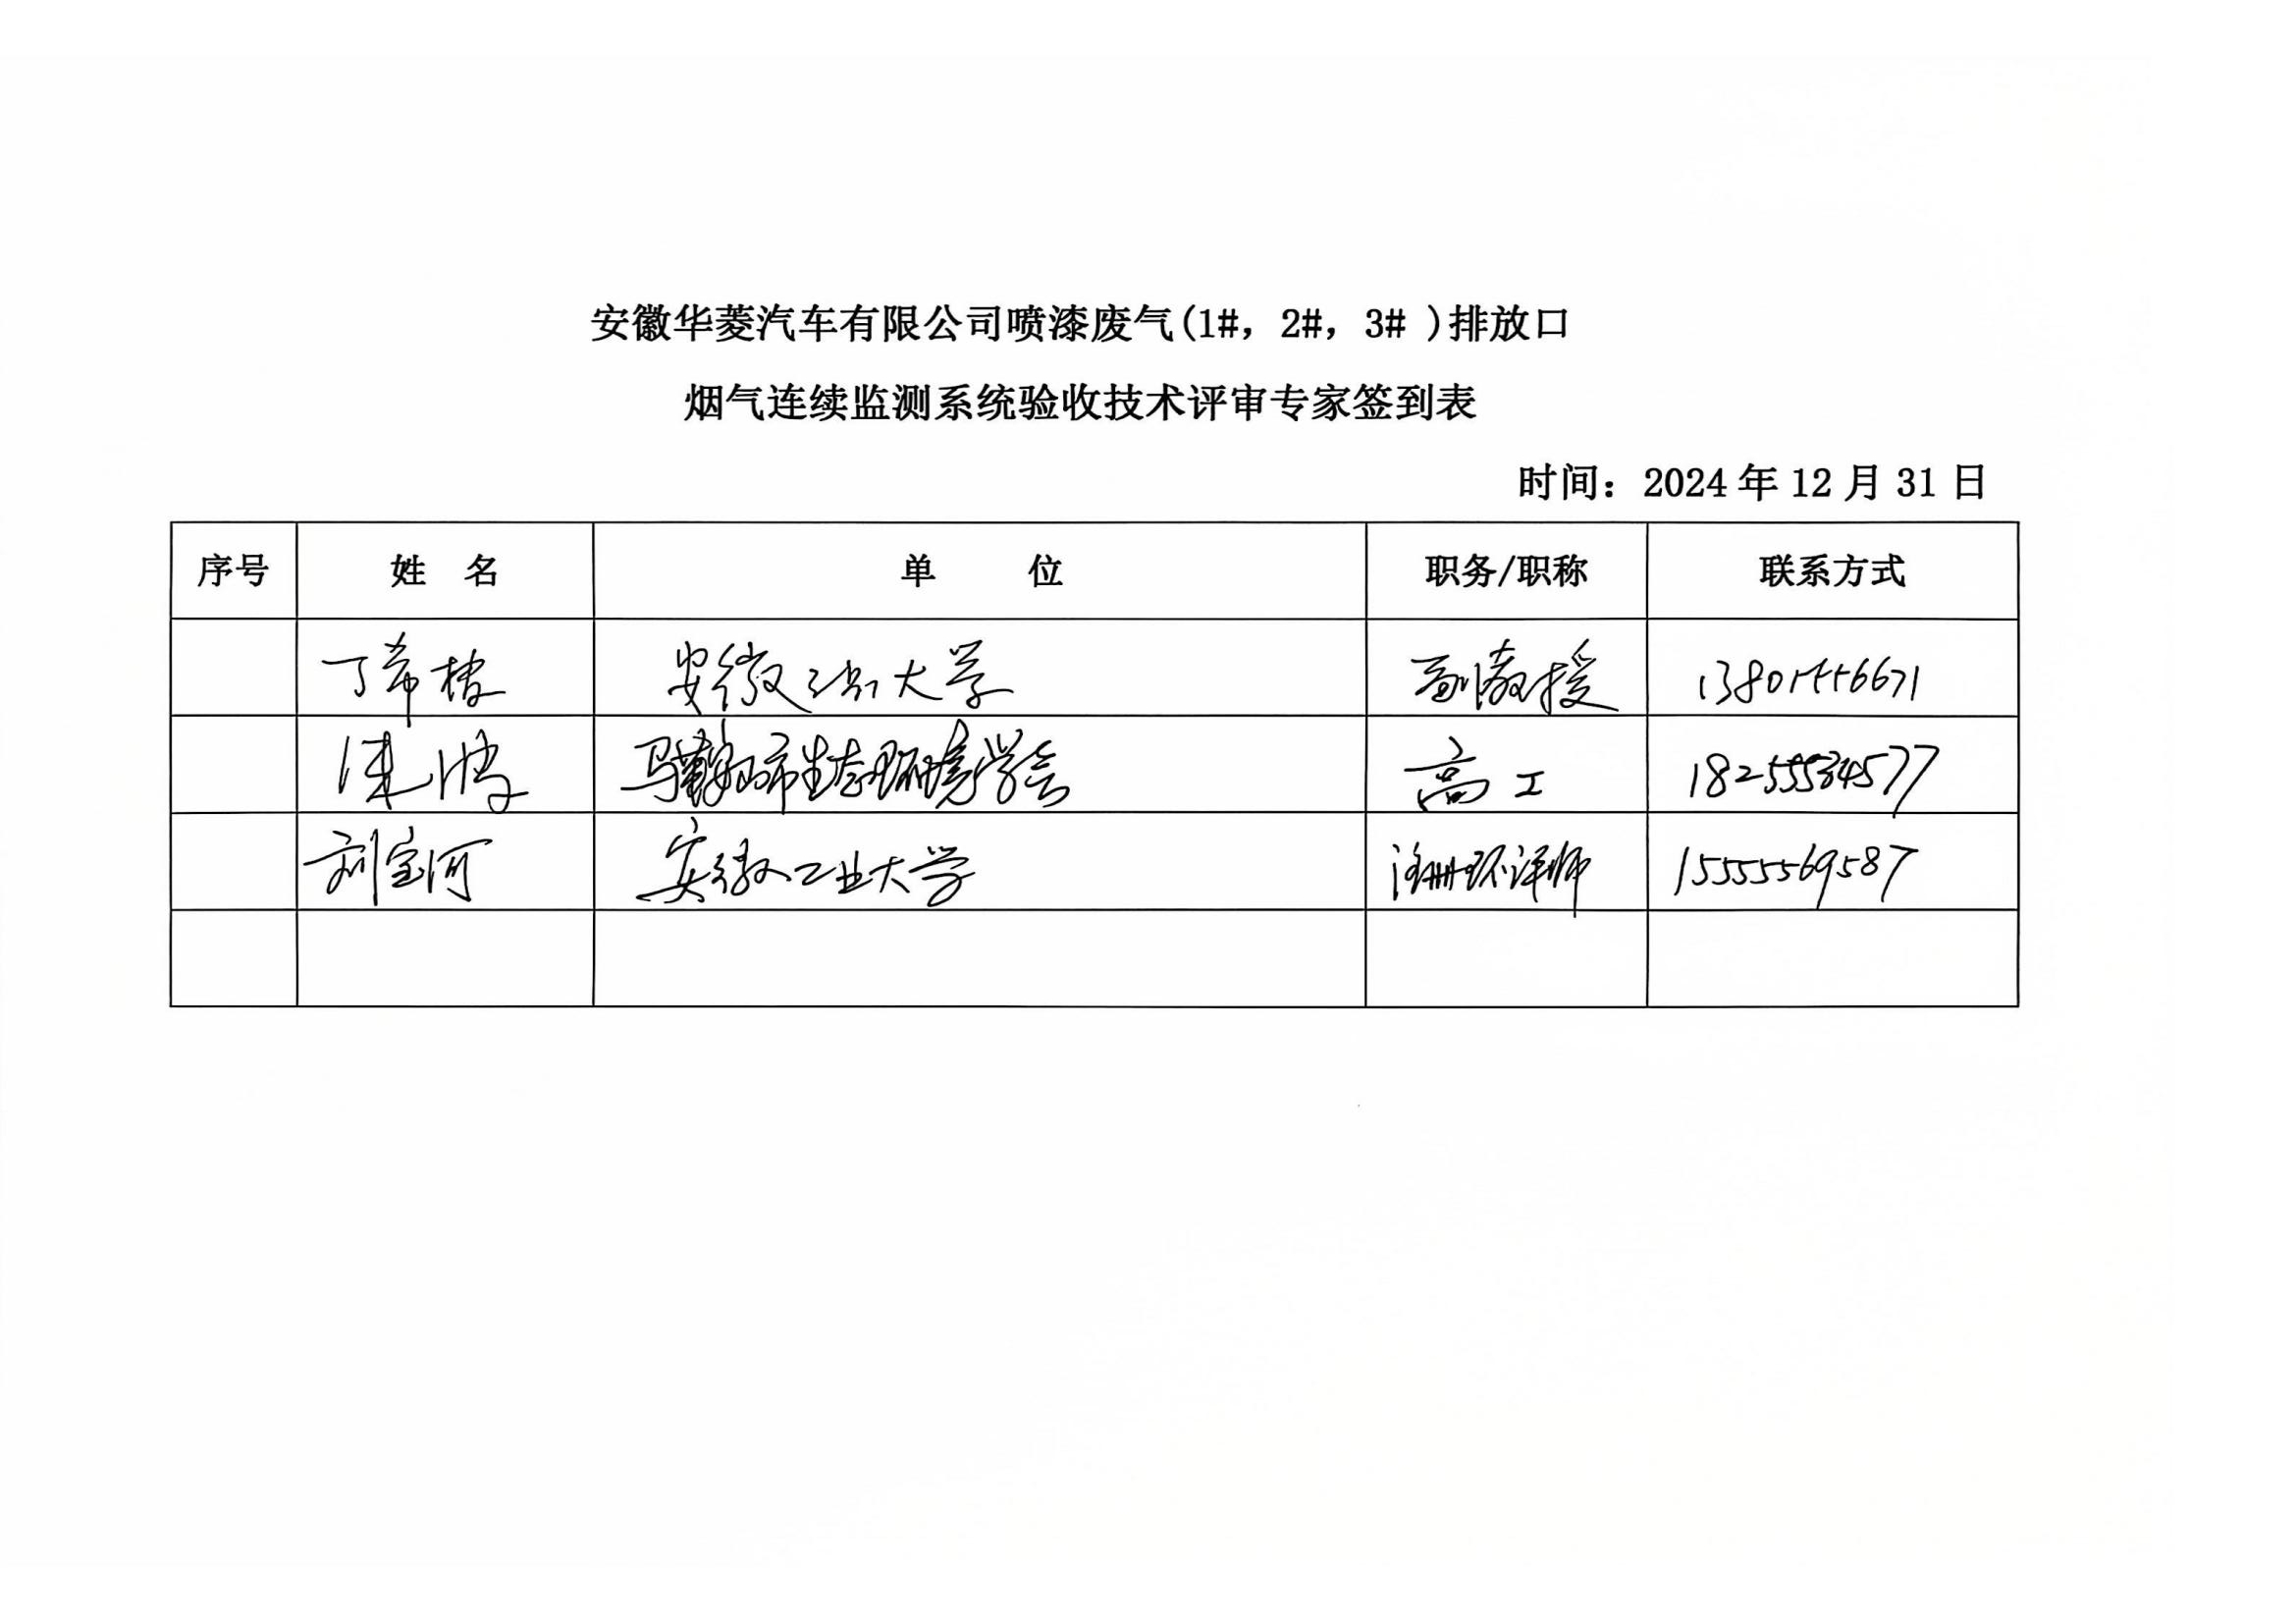 安徽华菱汽车有限公司喷漆废气(1#，2#，3# )排放口
烟气连续监测系统验收技术评审专家签到表
时间：2024年12月31日
序号 姓 名 单 位 职务/职称 联系方式
丁希楼 安徽工业大学 副教授
陈鹏 马鞍山市生态环境学会 高工 18255534577
刘宝河 安徽工业大学 注册环评师 15555569587